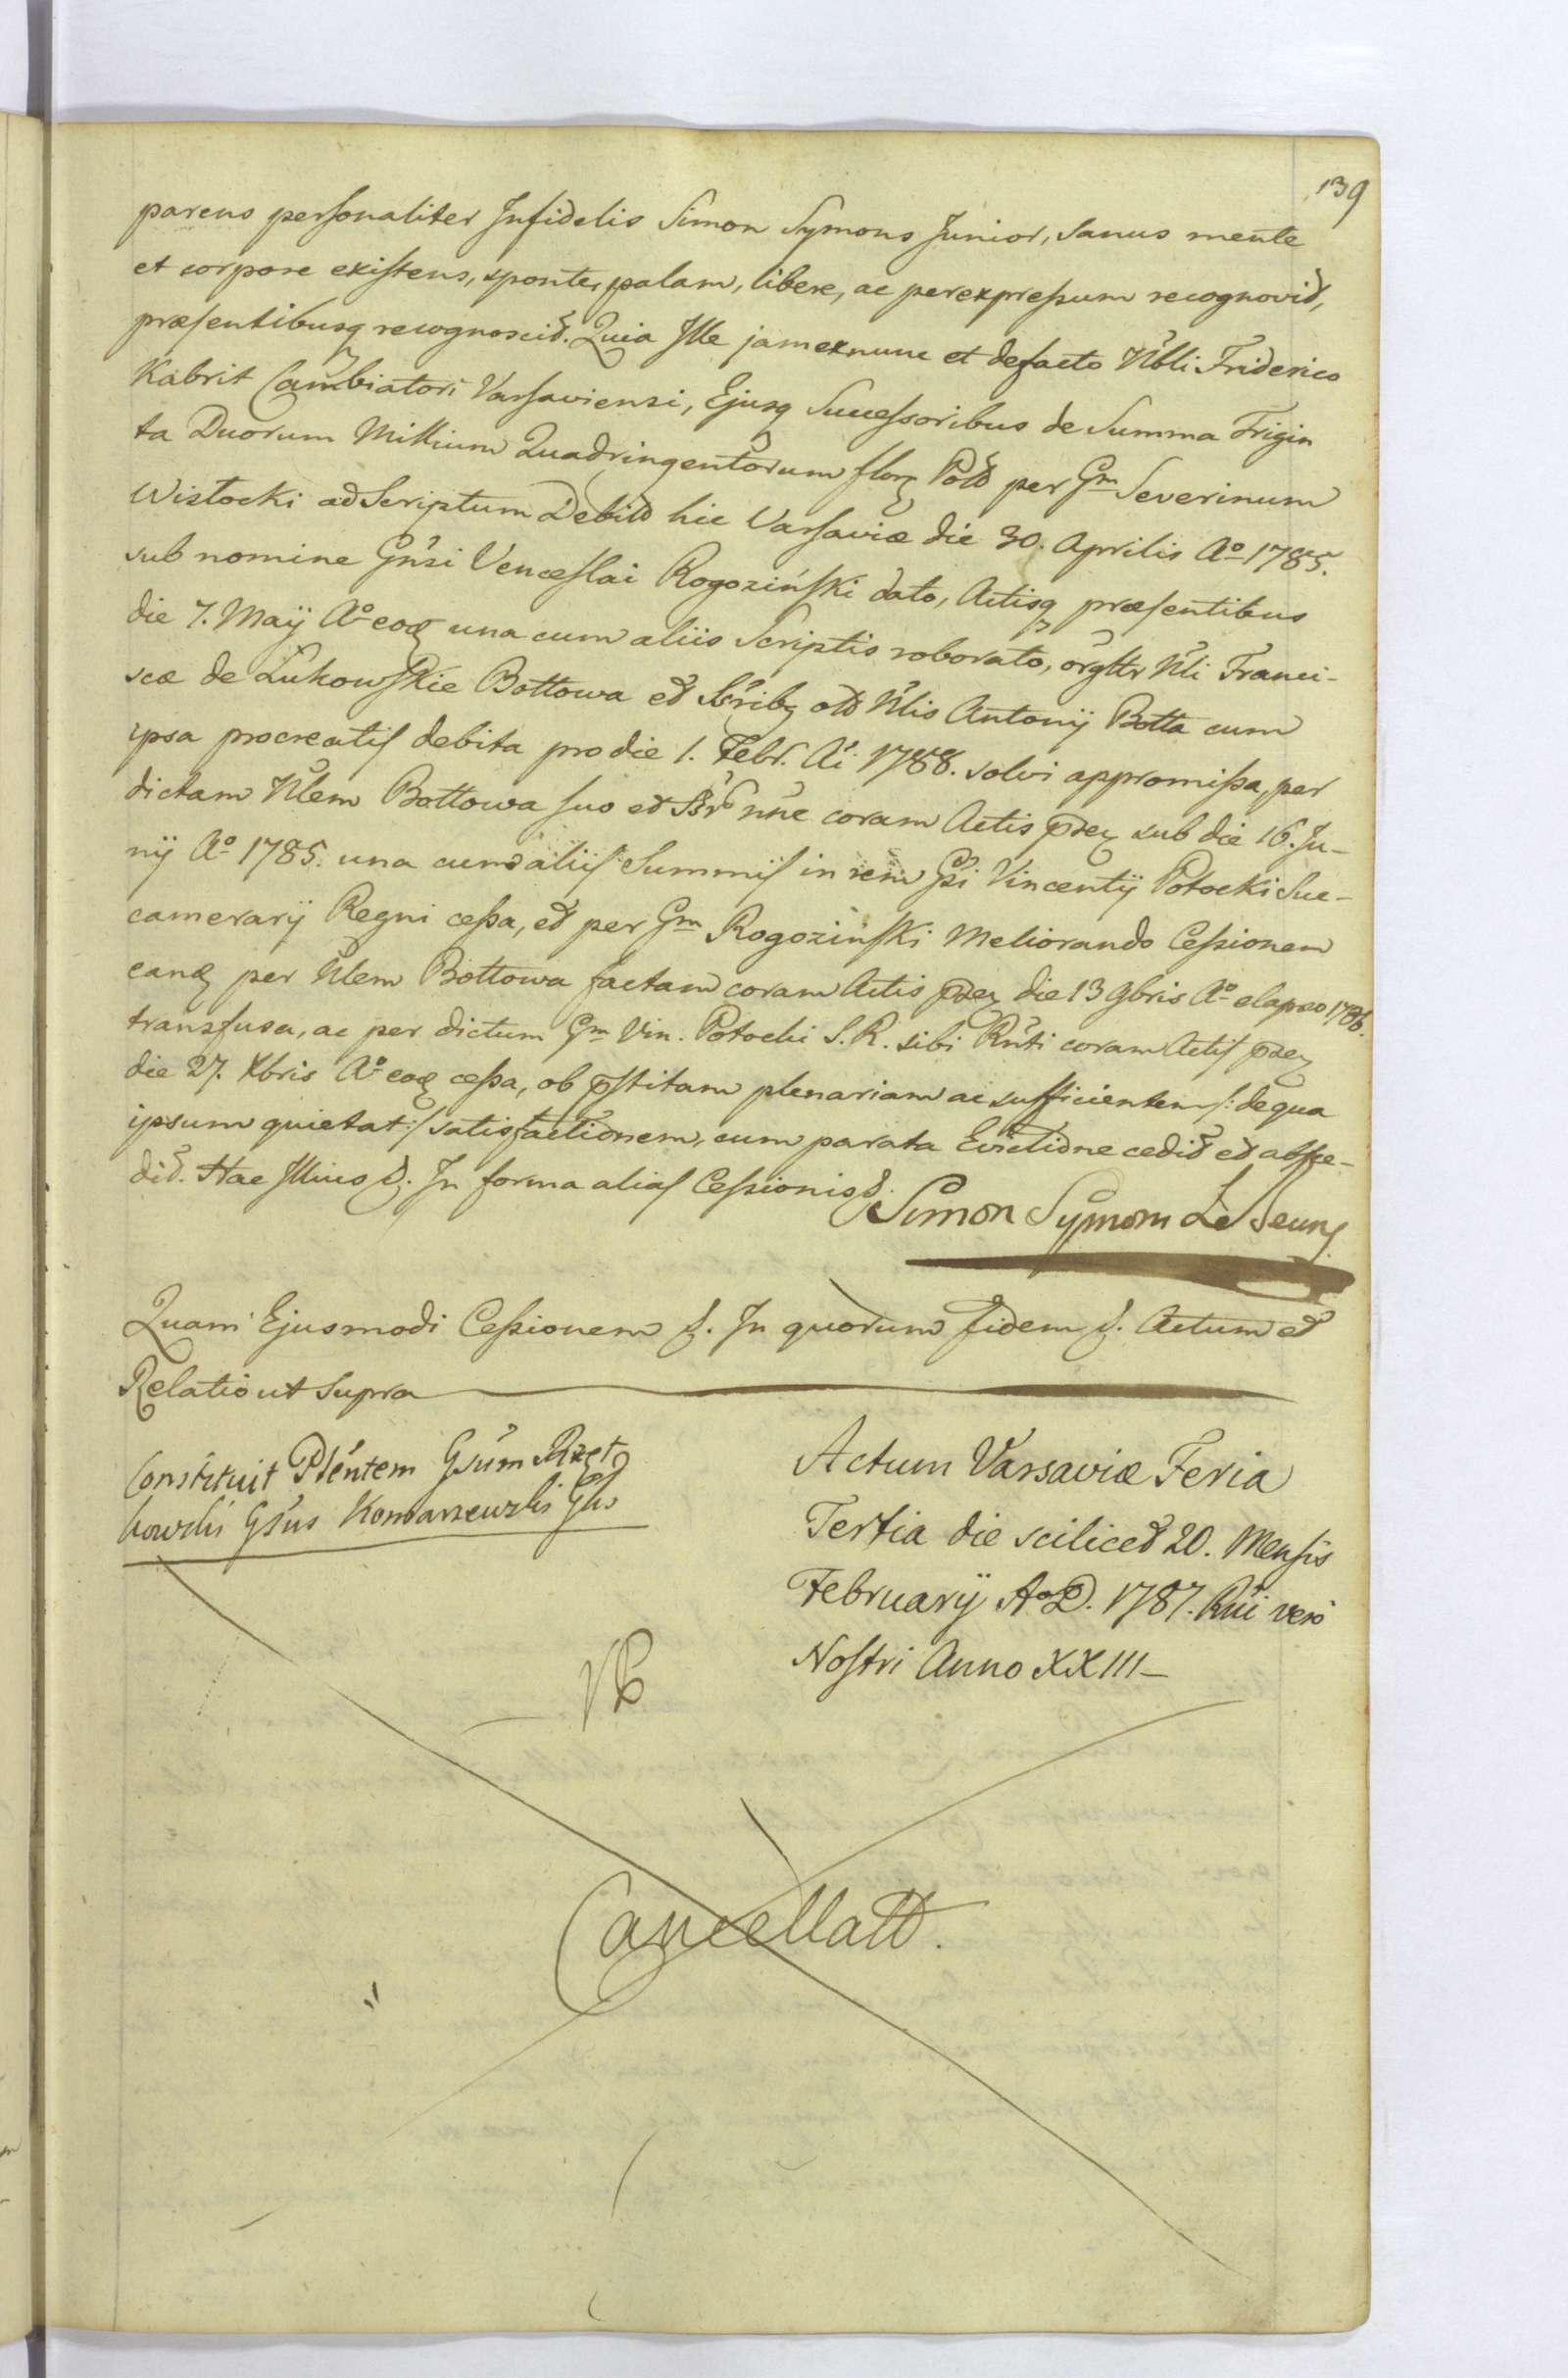 139
parens personaliter Infidelis Simon Symons Junior, Sanus mente
et corpore existens, sponte, palam, libere, ac perexpressum recognovit,
præsentibusq recognoscit. Quia Ille jamexnunc et defacto Nbli Friderico
Kabrit Cambiatori Varsaviensi, Ejusq Successoribus de Summa Trigin
ta Duorum Millium Quadringentorum flor Pold per Gm Severinum
Wisłocki ad Scriptum Debiti hic Varsaviæ die 30. Aprilis Ao 1785.
sub nomine Gnsi Venceslai Rogoziński dato, Actisq præsentibus
die 7. Maÿ Ao eoq una cum aliis Scriptis roborato, orgltr Nli Franci-
scæ de Łukowskie Bottowa et olt Nlis Antonÿ Botta cum
ipsa procreatis debita pro die 1. Febr. Ai 1788. solvi appromissa, per
dictam Nlem Bottowa suo et nne coram Actis sub die 16. Ju-
nÿ Ao 1785. una cum aliis Summis in rem Gsi Vincentÿ Potocki Suc-
camerarÿ Regni cessa, et per Gm Rogoziński Meliorando Cessionem
eanq per Nlem Bottowa factam coram Actis die 13 9bris Ao elapso 1786.
transfusa, ac per dictum Gm Vin. Potocki S. R. sibi Rnti coram Actis
die 27. Xbris Ao eoq cessa, ob pstitam plenariam ac sufficientem /: de qua
ipsum quietat :/ satisfactionem, cum parata Evictione cedit et absce-
dit. Hac Illius &. In forma alias Cessionis &.
Simon Symons Le Jeune
Quam Ejusmodi Cessionem &. In quorum fidem &. Actum et
Relatio ut Supra
Constituit Plentem Gsum Rzet
kowski Gsus Komarzewski Gls
Actum Varsaviæ Feria
Tertia die scilicet 20. Mensis
Februarÿ AoD. 1787. Rni vero
Nostri Anno XXIII
Cancellatt.